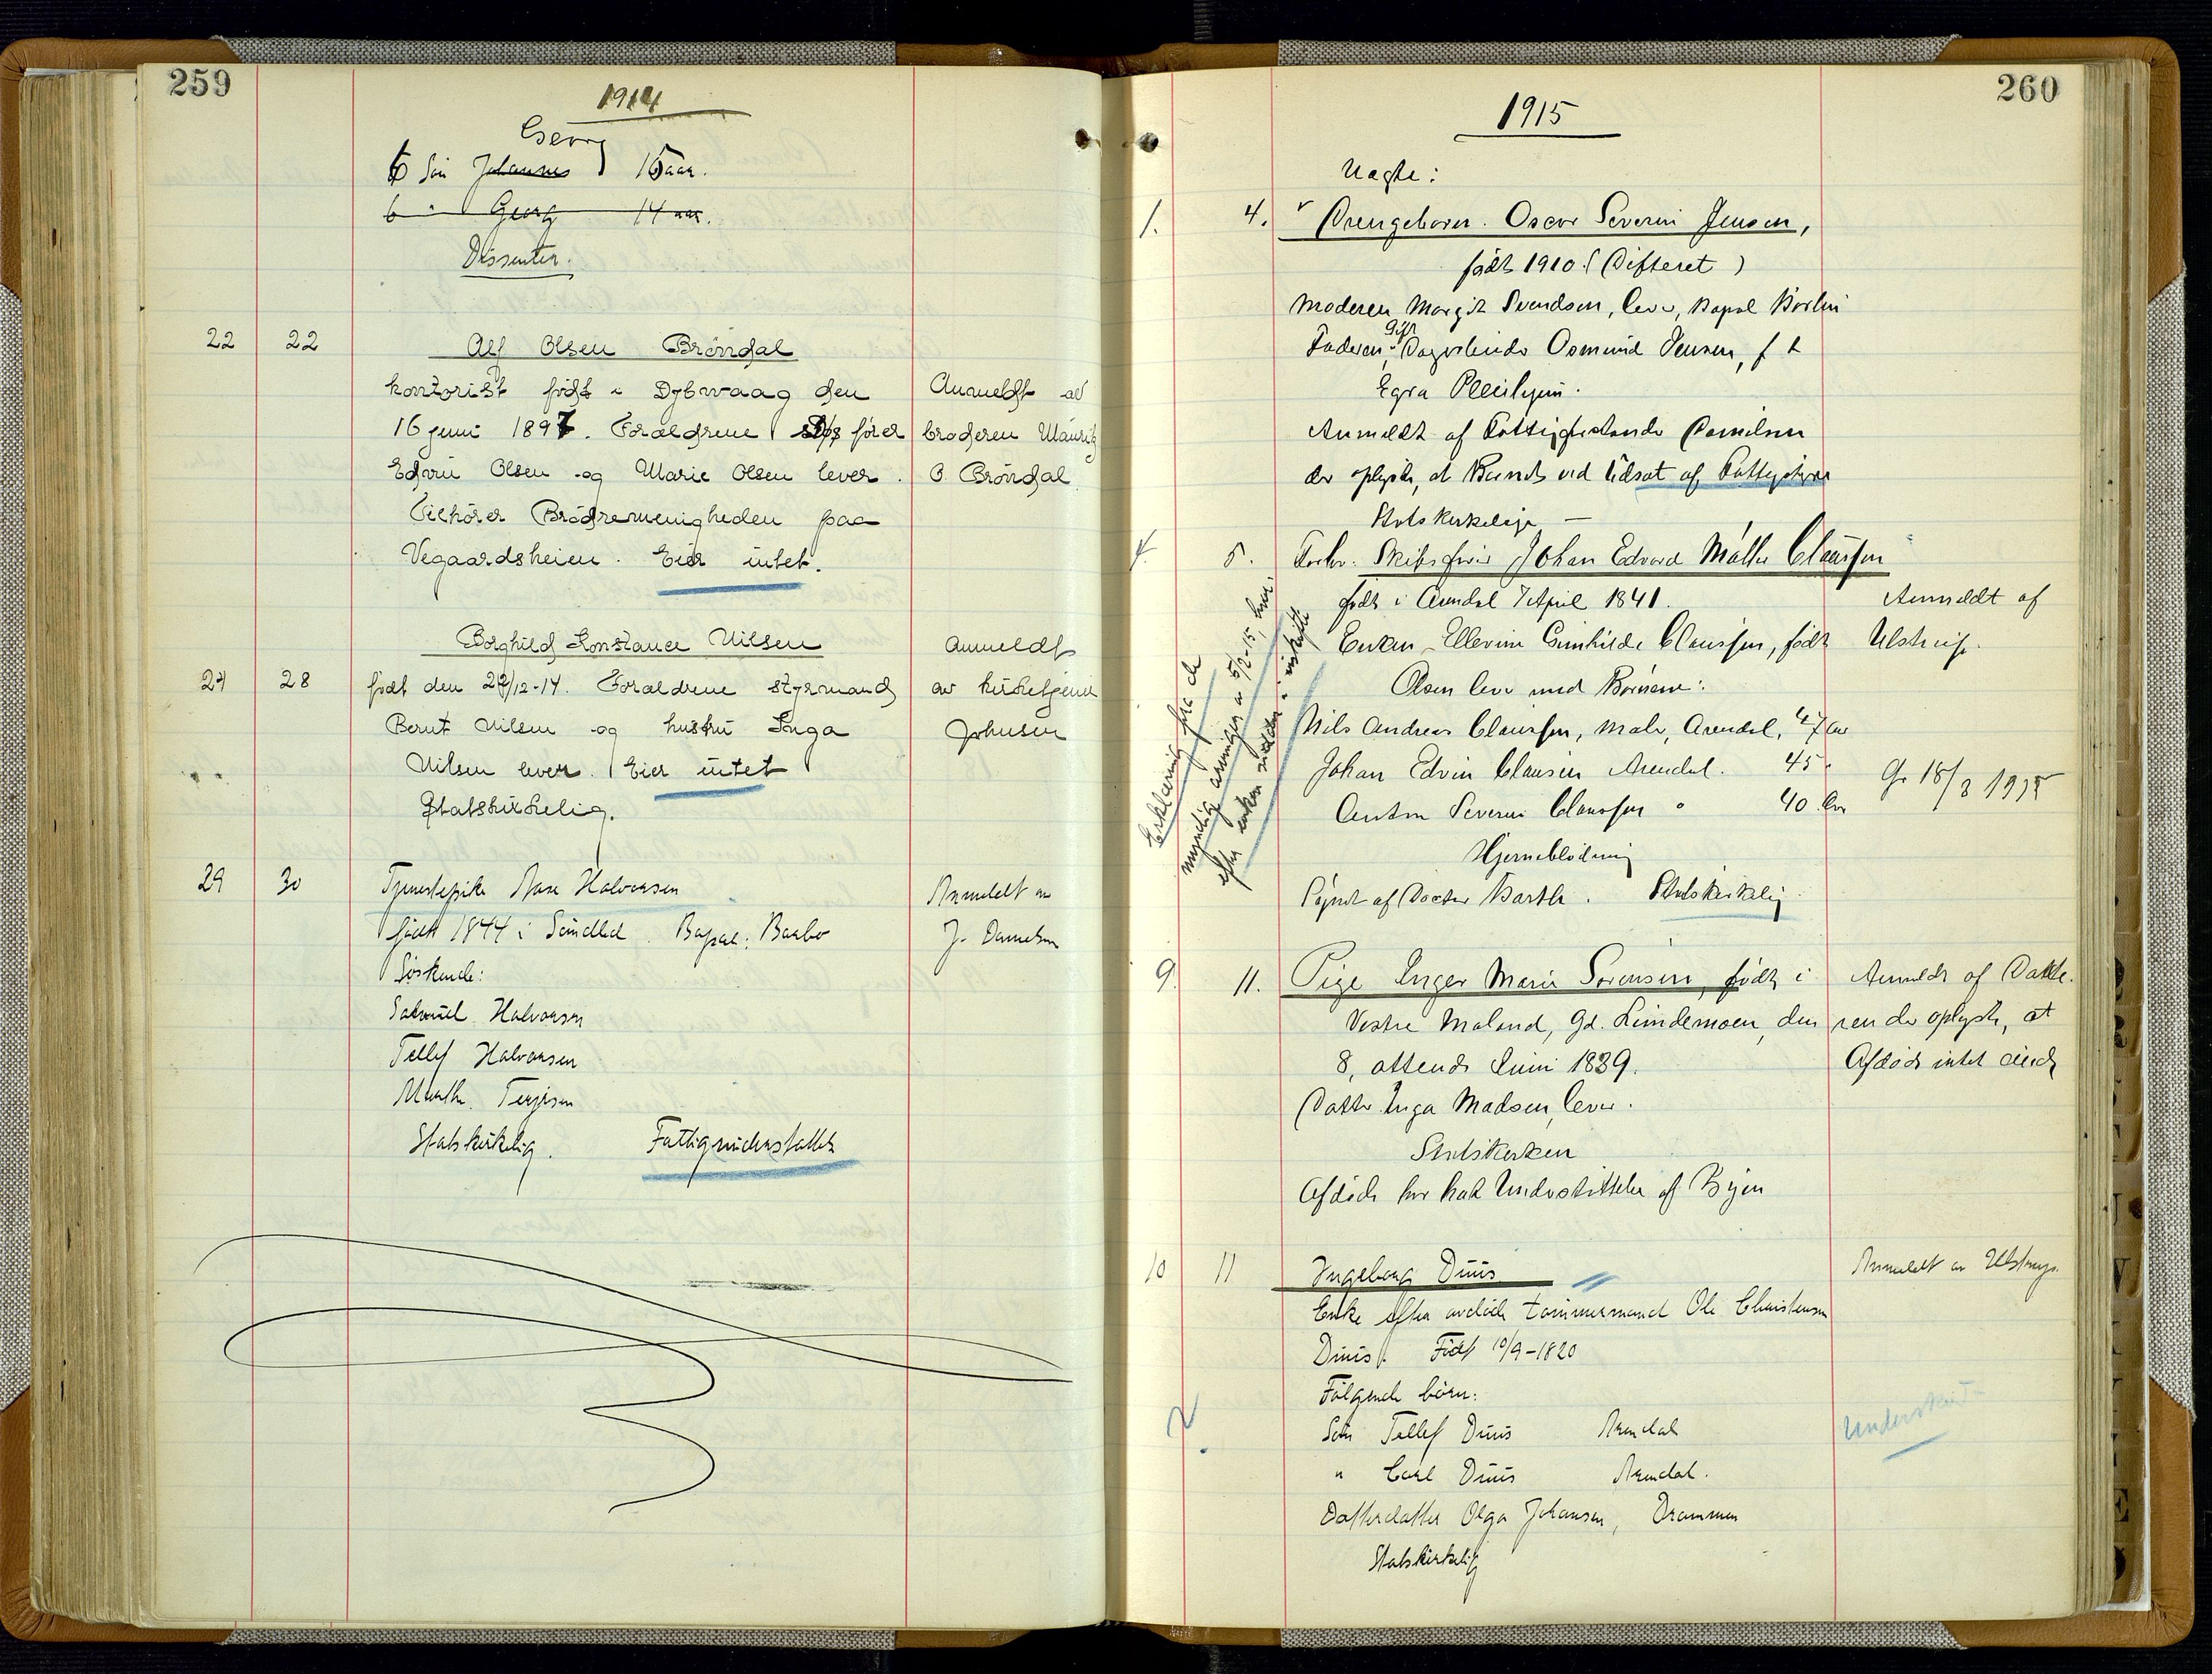 259
1914
Georg
6 Søn Johannes 16 aar.
6 " Georg 14 aar.
Dissenter.
22 22 Alf Olsen Bröndal
kontorist født i Dybvaag den
16 juni 1897. Forældrene fører
Edvin Olsen og Marie Olsen lever.
Tilhører Brødremenigheden paa
Vegaardsheien. Eier intet.
Anmeldt av
broderen Mauritz
O. Bröndal
Borghild Konstance Nilsen
27 28 født den 22/12-14. Forældrene styrmand
Bernt Nilsen og hustru Inga
Nilsen lever. Eier intet
Statskirkelig.
Anmeldt
av kirketjener
Johnsen
29 30 Tjenestepike Aase Halvorsen
født 1844 i Søndeled. Bopæl: Barbo
Søskende:
Salomül Halvorsen
Tellef Halvorsen
Marthe Terjesen
Statskirkelig. Fattigunderstøttet
Anmeldt av
J. Danielsen
260
1915
Uægte:
1. 4. Drengebarn Oscar Severin Jensen,
født 1910. (Difterit)
Moderen Margit Svendsen, lever, Bopæl Barbu
Faderen, Gift Dagarbeider Osmund Jensen, f t
Anmeldt af Fattigforstander Danielsen
der oplyste, at Barnet var Udsat af Fattigvæsen
Statskirkelige
4. 5. Forhv. Skibsfører Johan Edvard Møller Claussen
født i Arendal 7 April 1841.
Enken Ellevine Gunhilde Claussen, født
Olsen lever med Børnene:
Nils Andreas Claussen, Maler, Arendal, 47 aar
Johan Edvin Clausen Arendal. 45 "
Anton Severin Claussen " 40 Aar
Hjerneblødning
Synet af Doctor Barth. Statskirkelig.
Anmeldt af
Ulstrup.
18/3 1915
Erklæring fra de
myndige arvinger av 5/2-15,
efter enken sidder i uskifte
9. 11. Pige Inger Marie Sørensen, født i
Vestre Moland, Gd. Lindemoen, den
8, ottende Juni 1839.
Datter Inga Madsen, lever.
Statskirken
Afdøde har hat Understøttelse af Byen
Anmeldt af Datte-
ren der oplyste, at
Afdøde intet eiede
10 11 Ingeborg Duus
Enke efter avdøde tømmermand Ole Christensen
Duus. Født 10/9-1820
Følgende børn:
Søn Tellef Duus Arendal
" Carl Duus Arendal.
Datterdatter Olga Johansen, Drammen
Statskirkelig
Anmeldt av Ulstrup.